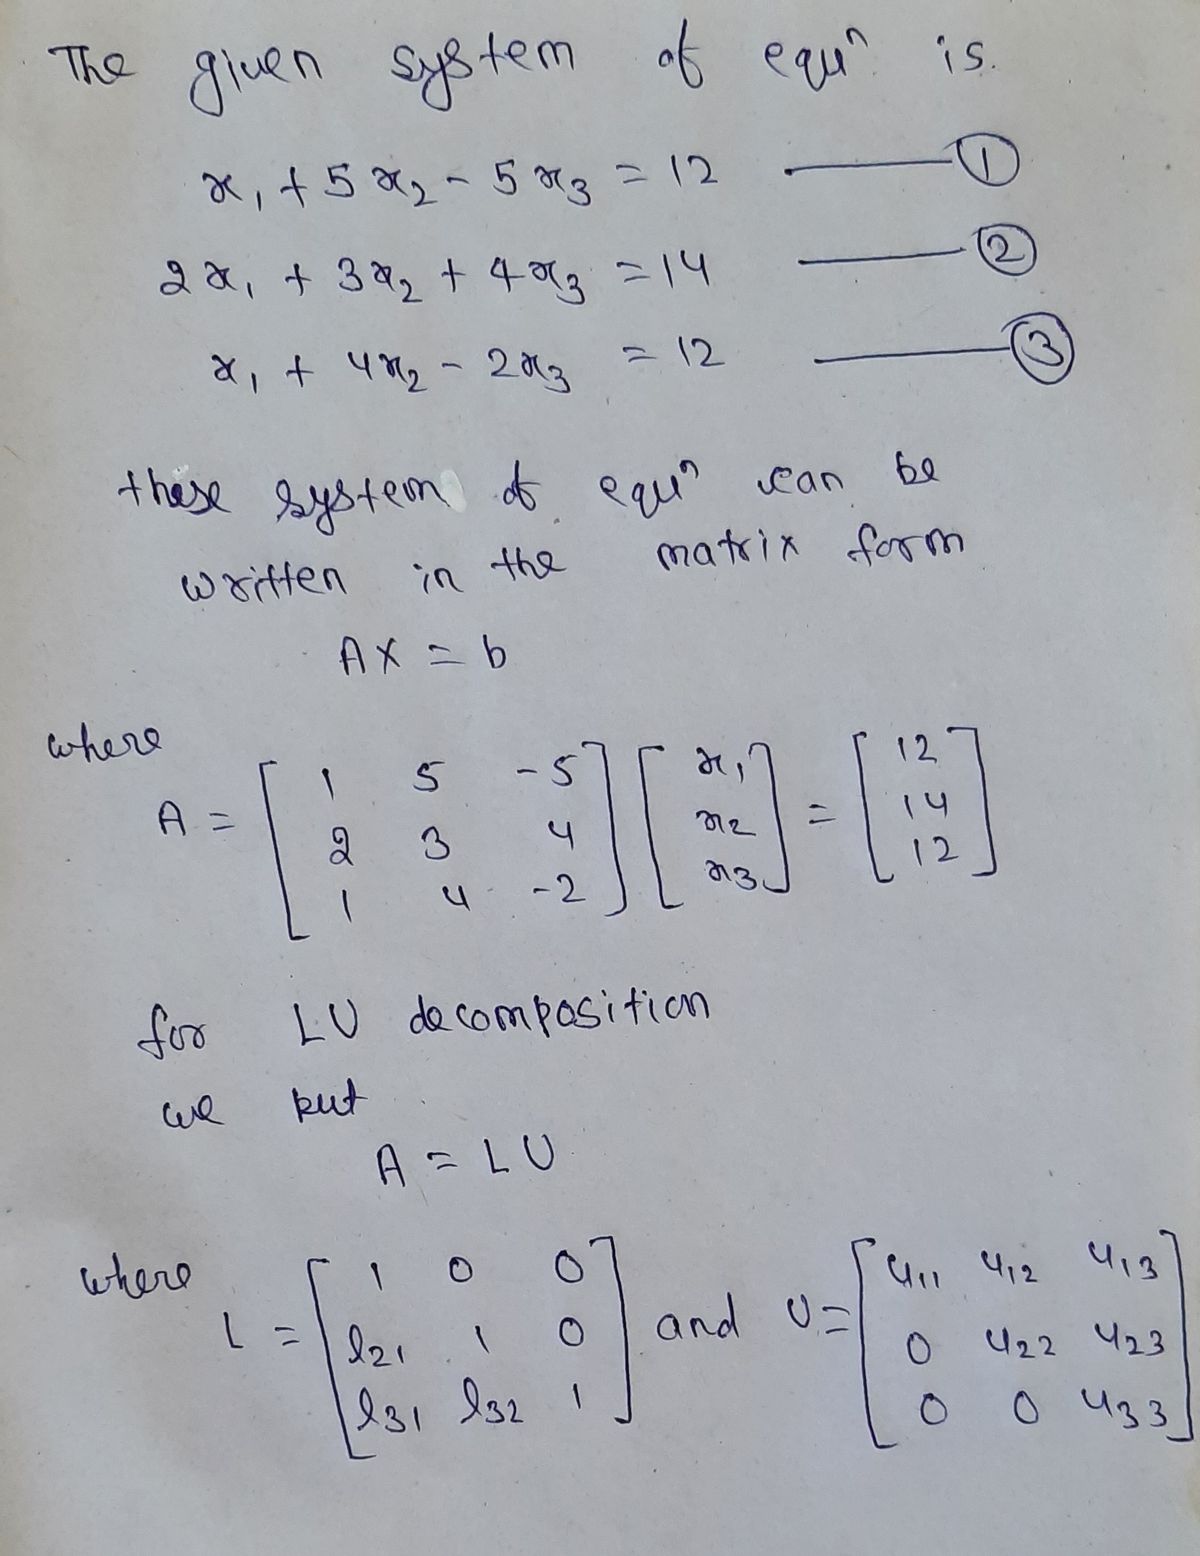 The given system of equⁿ is.
x₁ + 5x₂ - 5x₃ = 12 ——— ①
2x₁ + 3x₂ + 4x₃ = 14 ——— ②
x₁ + 4x₂ - 2x₃ = 12 ——— ③
these system of equⁿ can be
written in the matrix form
AX = b
where
A = [1 5 -5; 2 3 4; 1 4 -2] [x₁; x₂; x₃] = [12; 14; 12]
for LU decomposition
we put
A = LU
where
L = [1 0 0; l₂₁ 1 0; l₃₁ l₃₂ 1] and U = [u₁₁ u₁₂ u₁₃; 0 u₂₂ u₂₃; 0 0 u₃₃]